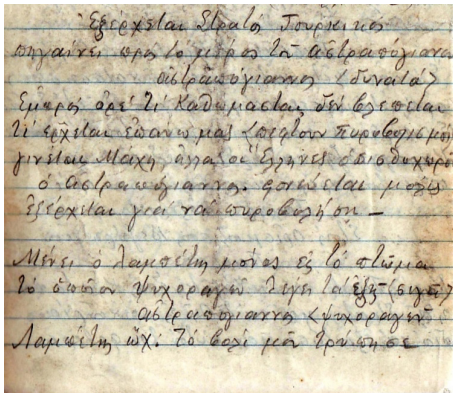 Ἐξέρχεται Στρατὸς Τουρκικὸς
πηγαίνει πρὸς τὸ μέρος τοῦ ἀστραπόγιαννο
ἀστραπόγιαννος (δυνατά)
Ἐμπρὸς ὀρέ τί καθώμασται δὲν βλέπεται
τί ἔρχεται ἐπάνω μας (πέφτουν πυροβολισμοὶ
γίνεται Μάχη ἀλλὰ οἱ Ἕλληνες ὀπισθοχωρο
ὁ ἀστραπόγιαννος φονεύεται μόλις
ἐξέρχεται γιὰ νὰ πυροβολήση —
Μένει ὁ Λαμπέτης μόνος εἰς τὸ πτῶμα
τὸ ὁποῖον ψυχοραγῶ λέγει τὰ ἑξῆς (σιγά)
ἀστραπόγιαννος (ψυχοραγεῖ
Λαμπέτη ὤχ! τὸ βόλι μὲ τρύπησε